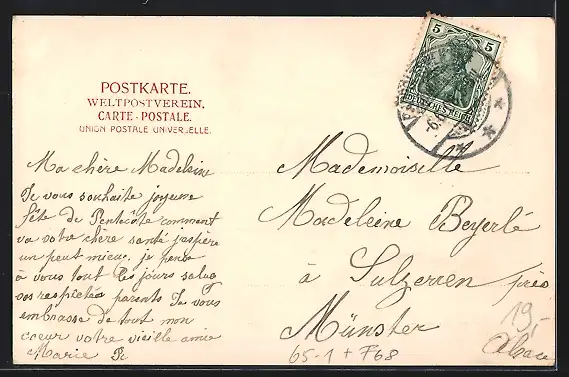 POSTKARTE.
WELTPOSTVEREIN.
CARTE-POSTALE.
UNION POSTALE UNIVERSELLE.
5 5
DEUTSCHES REICH
Ma chère Madeleine
Je vous souhaite joyeuse
fête de Pentecôte comment
va votre chère santé j'espère
un peut mieux. je pense
à vous tout les jours salue
vos respectés parents Je vous
embrasse de tout mon
cœur votre vieille amie
Marie
Mademoiselle
Madeleine Beyerlé
à Sulzeren près
Münster
Alsace
19,-
65-1 + F68